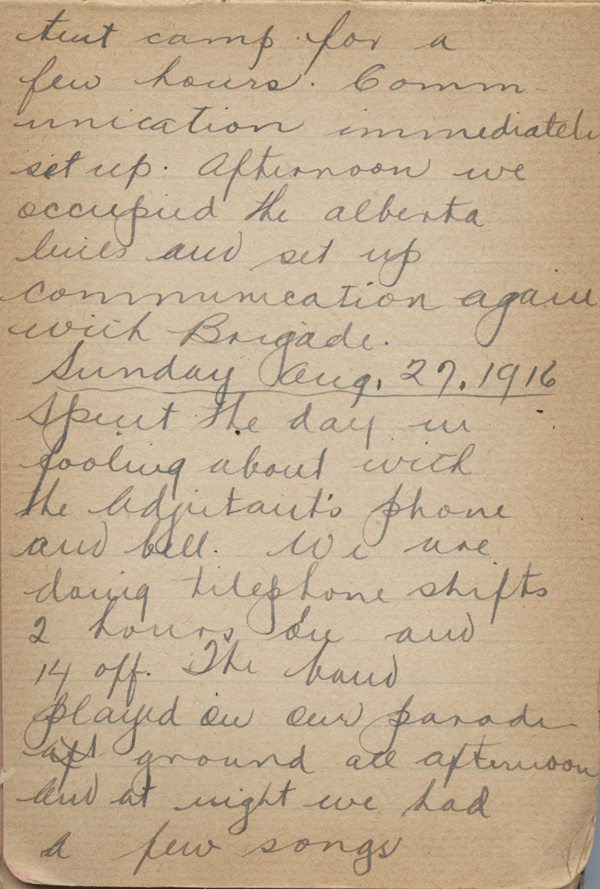 tent camp for a
few hours. Comm-
unication immediately
set up. Afternoon we
occupied the alberta
lines and set up
communication again
with Brigade.
Sunday Aug. 27, 1916
Spent the day in
fooling about with
the Adjutant's phone
and bell. We are
doing telephone shifts
2 hours on and
14 off. The band
played on our parade
ground all afternoon
and at night we had
a few songs